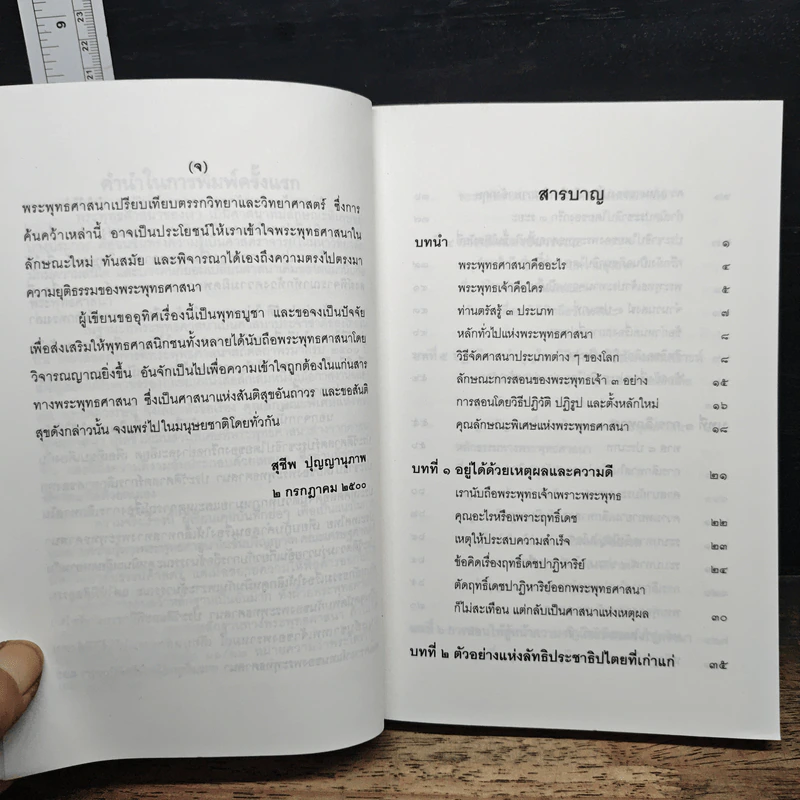 9
23
22
21
(จ)
พระพุทธศาสนาเปรียบเทียบตรรกวิทยาและวิทยาศาสตร์ ซึ่งการ
ค้นคว้าเหล่านี้ อาจเป็นประโยชน์ให้เราเข้าใจพระพุทธศาสนาใน
ลักษณะใหม่ ทันสมัย และพิจารณาได้เองถึงความตรงไปตรงมา
ความยุติธรรมของพระพุทธศาสนา
ผู้เขียนขออุทิศเรื่องนี้เป็นพุทธบูชา และขอจงเป็นปัจจัย
เพื่อส่งเสริมให้พุทธศาสนิกชนทั้งหลายได้นับถือพระพุทธศาสนาโดย
วิจารณญาณยิ่งขึ้น อันจักเป็นไปเพื่อความเข้าใจถูกต้องในแก่นสาร
ทางพระพุทธศาสนา ซึ่งเป็นศาสนาแห่งสันติสุขอันถาวร และขอสันติ
สุขดังกล่าวนั้น จงแพร่ไปในมนุษยชาติโดยทั่วกัน
สุชีพ ปุญญานุภาพ
๒ กรกฎาคม ๒๕๐๐
สารบาญ
บทนำ ๑
พระพุทธศาสนาคืออะไร ๔
พระพุทธเจ้าคือใคร ๕
ท่านตรัสรู้ ๓ ประเภท ๗
หลักทั่วไปแห่งพระพุทธศาสนา ๘
วิธีจัดศาสนาประเภทต่าง ๆ ของโลก ๘
ลักษณะการสอนของพระพุทธเจ้า ๓ อย่าง ๑๕
การสอนโดยวิธีปฏิวัติ ปฏิรูป และตั้งหลักใหม่ ๑๖
คุณลักษณะพิเศษแห่งพระพุทธศาสนา ๑๘
บทที่ ๑ อยู่ได้ด้วยเหตุผลและความดี ๒๑
เรานับถือพระพุทธเจ้าเพราะพระพุทธ
คุณอะไรหรือเพราะฤทธิ์เดช ๒๒
เหตุให้ประสบความสำเร็จ ๒๓
ข้อคิดเรื่องฤทธิ์เดชปาฏิหาริย์ ๒๔
ตัดฤทธิ์เดชปาฏิหาริย์ออกพระพุทธศาสนา
ก็ไม่สะเทือน แต่กลับเป็นศาสนาแห่งเหตุผล ๓๐
บทที่ ๒ ตัวอย่างแห่งลัทธิประชาธิปไตยที่เก่าแก่ ๓๕